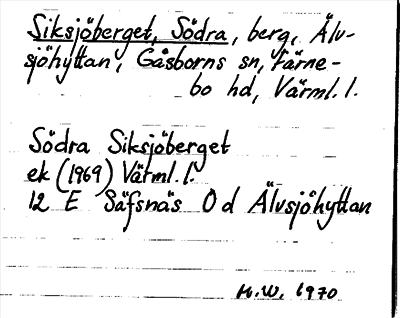 Siksjöberget, Södra, berg, Älv-
sjöhyttan, Gåsborns sn, Färne-
bo hd, Värml. l.
Södra Siksjöberget
ek (1969) Värml. l.
12 E Säfsnäs 0 d Älvsjöhyttan
H.W. 1970